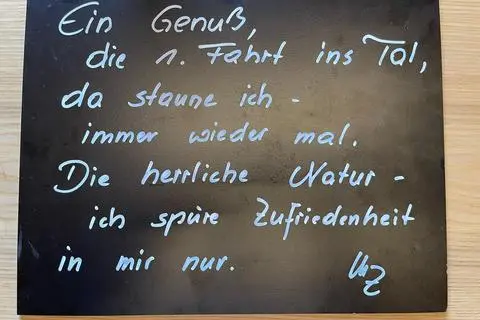 Ein Genuß,
die 1. Fahrt ins Tal,
da staune ich -
immer wieder mal.
Die herrliche Natur -
ich spüre Zufriedenheit
in mir nur.